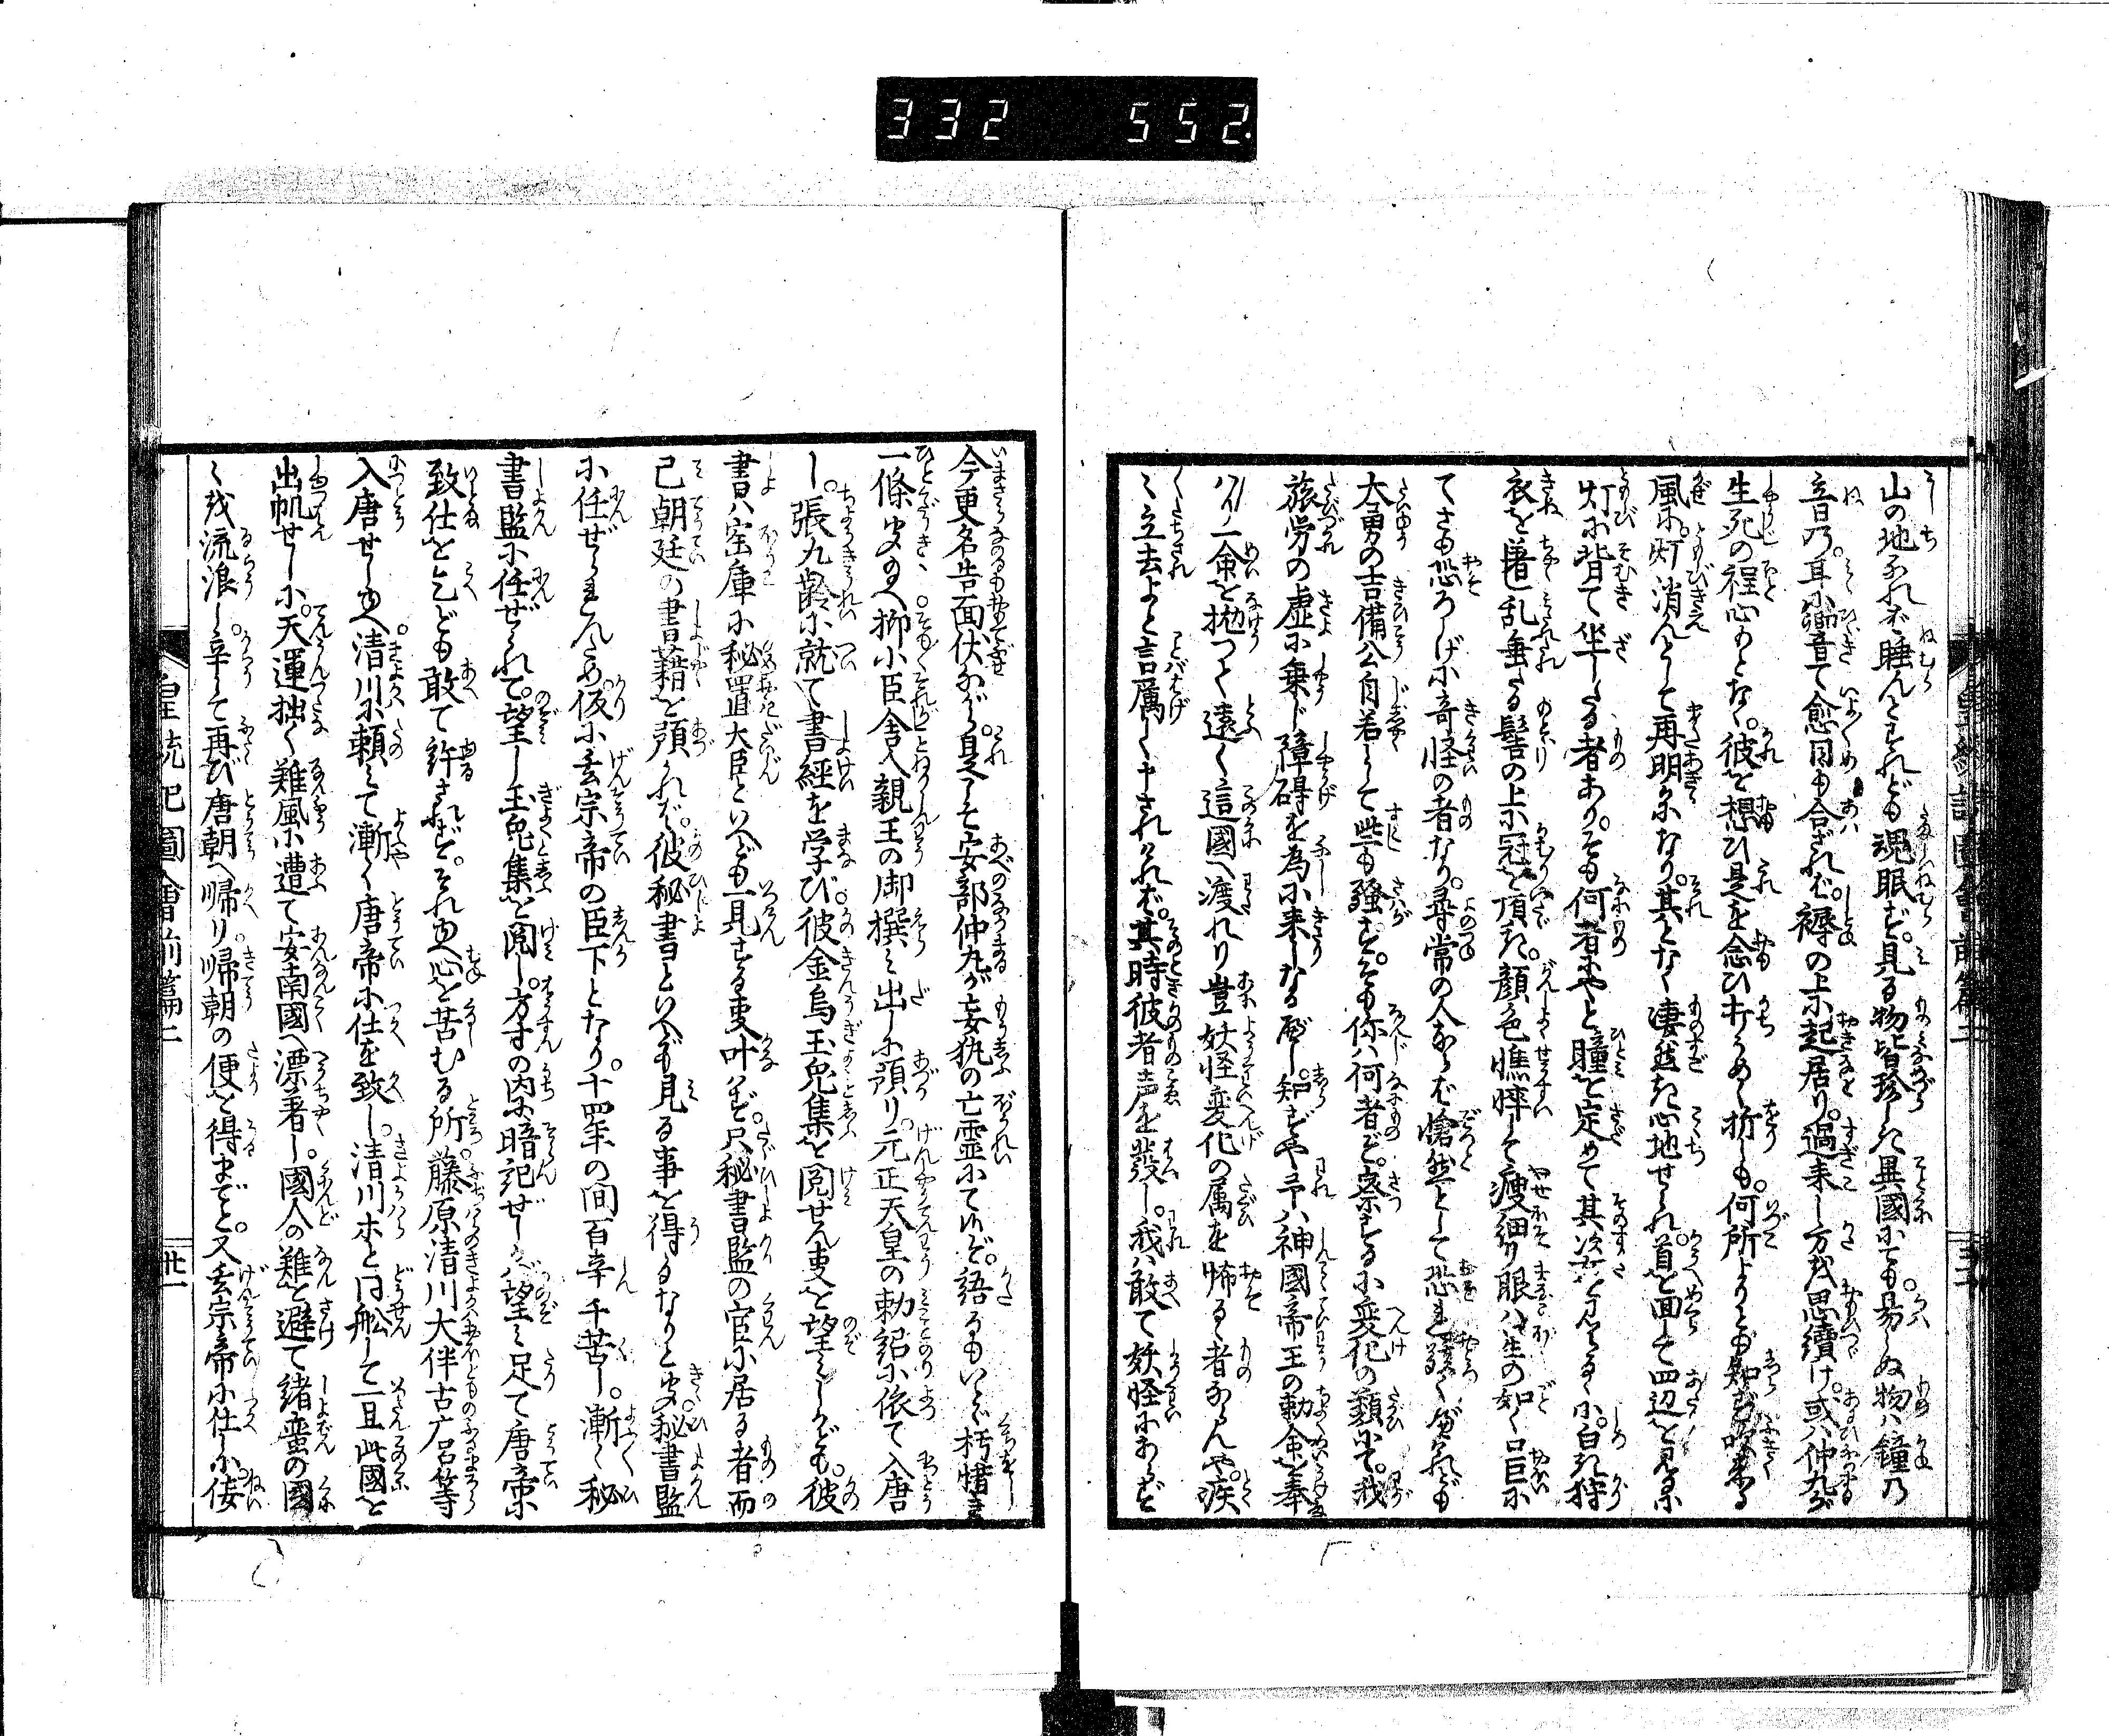 332 552
山の地なれバ睡んとすれども魂眠ず。見る物皆珍しき異國にても。易らぬ物ハ鐘の
音乃。耳に響て愈目も合ざれバ。褥の上に起居り。過来し方我思續け。或ハ仲丸が
生死の程心もとなく。彼を想ひ是を念ひ打うめく折しも。何所よりとも知ず吹来る
風に。灯消んとして再明かになり。其となく凄然き心地せられ。首を回して四辺を見るに
灯に背て坐したる者あり。そも何者にやと瞳を定めて其次を見るに。白き狩
衣を着乱垂たる髻の上に冠を頂き。顔色憔悴して痩細り眼ハ生の如く
てさも恐ろしげに奇怪の者なり。尋常の人ならバ愴然として恐れ
大勇の吉備公自若として些も騒ず。そも你ハ何者ぞ。察するに変化の類にて。我
旅労の虚に乗じ障碍を為に来しなるべし。知ずや予ハ神國帝王の勅命を奉
ハり一命を抛つて遠く這國へ渡れり豈妖怪変化の属を怖るゝ者ならんや。疾
く立去よと言厲しく申されけれバ。其時彼者声を發し。我ハ敢て妖怪にあらず
今更名告も面伏ながら。是こそ安部仲丸が妄執の亡霊にて候ぞ。語るもいと朽惜き
一條に候へ。抑小臣舎人親王の御撰ミ出しに預り。元正天皇の勅詔に依て入唐
し。張九齢に就て書經を学び。彼金烏玉兎集を閲せん事を望ミしかども。彼
書ハ宝庫に秘置大臣といへども一見する事叶ハず。只秘書監の官に居る者而
已朝廷の書籍を預かれバ。彼秘書といへども見る事を得るなりと聞。秘書監
に任ぜられんため。仮に玄宗帝の臣下となり。十四年の間百辛千苦し。漸く秘
書監に任ぜられて。望し玉兎集を閲し。方寸の内に暗記ぜしかバ望ミ足て唐帝に
致仕を乞ども敢て許されず。それゆへ心を苦むる所。藤原清川大伴古广呂等
入唐せしゆへ。清川に頼ミて漸く唐帝に仕を致し。清川ホと同舩して一旦此國を
出帆せしに。天運拙く難風に遭て安南國へ漂着し。國人の難を避て緒蛮の國
ゝ我流浪し。辛して再び唐朝へ帰り。帰朝の便を得までと。又玄宗帝に仕しに佞
皇統記圖會前篇二
廿一